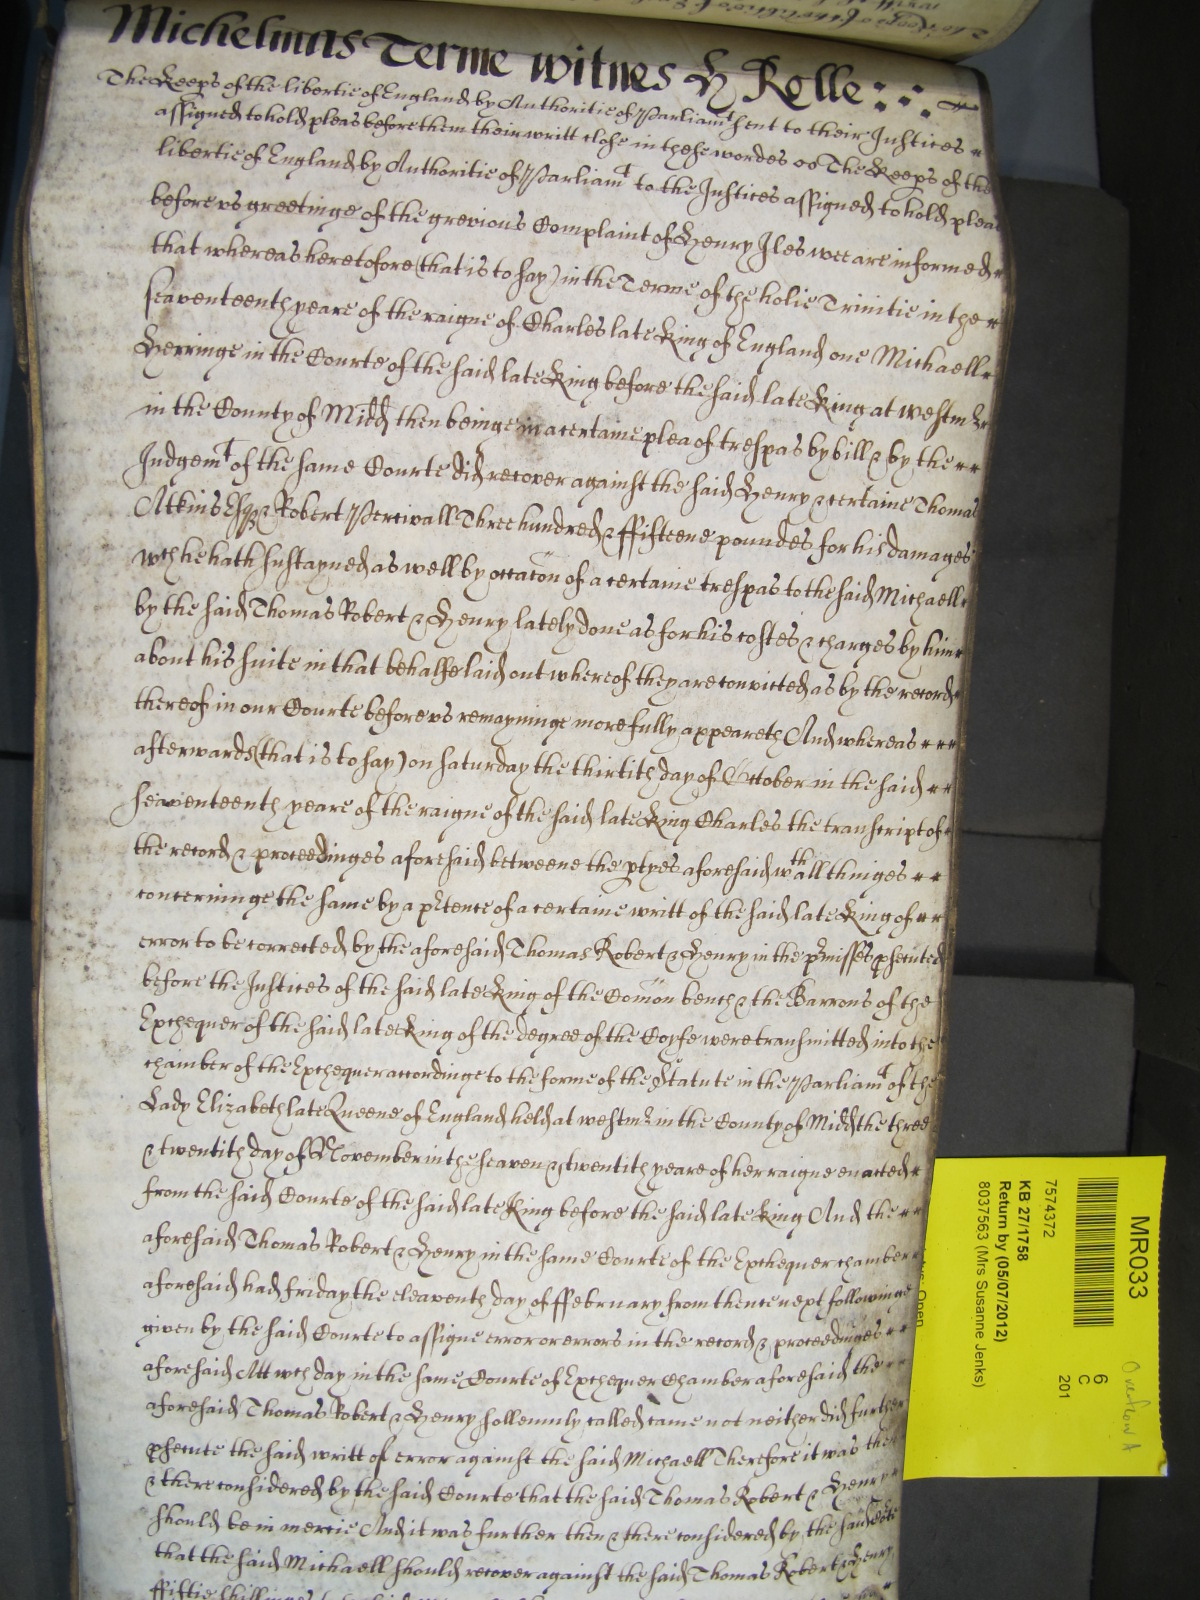 Michelmas Terme witnes H Rolle
The Keeps of the libertie of England by Authoritie of Parliamt sent to their Justices
assigned to hold pleas before them their writt close in these wordes ss The Keeps of the
libertie of England by Authoritie of Parliamt to the Justices assigned to hold pleas
before us greetinge of the grevious Complaint of Henry Iles wee are informed
that whereas heretofore (that is to say) in the Terme of the holie Trinitie in the
seaventeenth yeare of the raigne of Charles late King of England one Michaell
Herringe in the Courte of the said late King before the said late King at westmr
in the County of Midd then beinge in a certaine plea of trespas by bill & by the
Judgemt of the same Courte did recover against the said Henry & certaine Thomas
Atkins Esqr & Robert Percivall Three hundred & ffifteene poundes for his damages
wch he hath sustayned as well by occacon of a certaine trespas to the said Michaell
by the said Thomas Robert & Henry lately done as for his costes & charges by him
about his suite in that behalfe laid out whereof they are convicted as by the record
thereof in our Courte before us remayninge more fully appeareth And whereas
afterwards (that is to say) on saturday the thirtith day of October in the said
seaventeenth yeare of the raigne of the said late King Charles the transcript of
the record & proceedinges aforesaid betweene the ptyes aforesaid wth all thinges
concerninge the same by a ptence of a certaine writt of the said late King of
error to be corrected by the aforesaid Thomas Robert & Henry in the pmisses psecuted
before the Justices of the said late King of the Comon bench & the Barrons of the
Exchequer of the said late King of the degree of the Coyfe were transmitted into the
chamber of the Exchequer accordinge to the forme of the Statute in the Parliamt of the
Lady Elizabeth late Queene of England held at westmr in the County of Midd the three
& twentith day of November in the seaven & twentith yeare of her raigne enacted
from the said Courte of the said late King before the said late King And the
aforesaid Thomas Robert & Henry in the same Courte of the Exchequer chamber
aforesaid had friday the eleaventh day of ffebruary from thence next followinge
given by the said Courte to assigne error or errors in the record & proceedinges
aforesaid Att wch day in the same Courte of Exchequer Chamber aforesaid the
aforesaid Thomas Robert & Henry sollemnly called came not neither did further
psecute the said writt of error against the said Michaell Therefore it was then
& there considered by the said Courte that the said Thomas Robert & Henry
should be in mercie And it was further then & there considered by the said Courte
that the said Michaell should recover against the said Thomas Robert & Henry
ffiftie shillinges
MR033
7574372
KB 27/1758
Return by (05/07/2012)
8037563 (Mrs Susanne Jenks)
6
C
201
Overflow A
Open